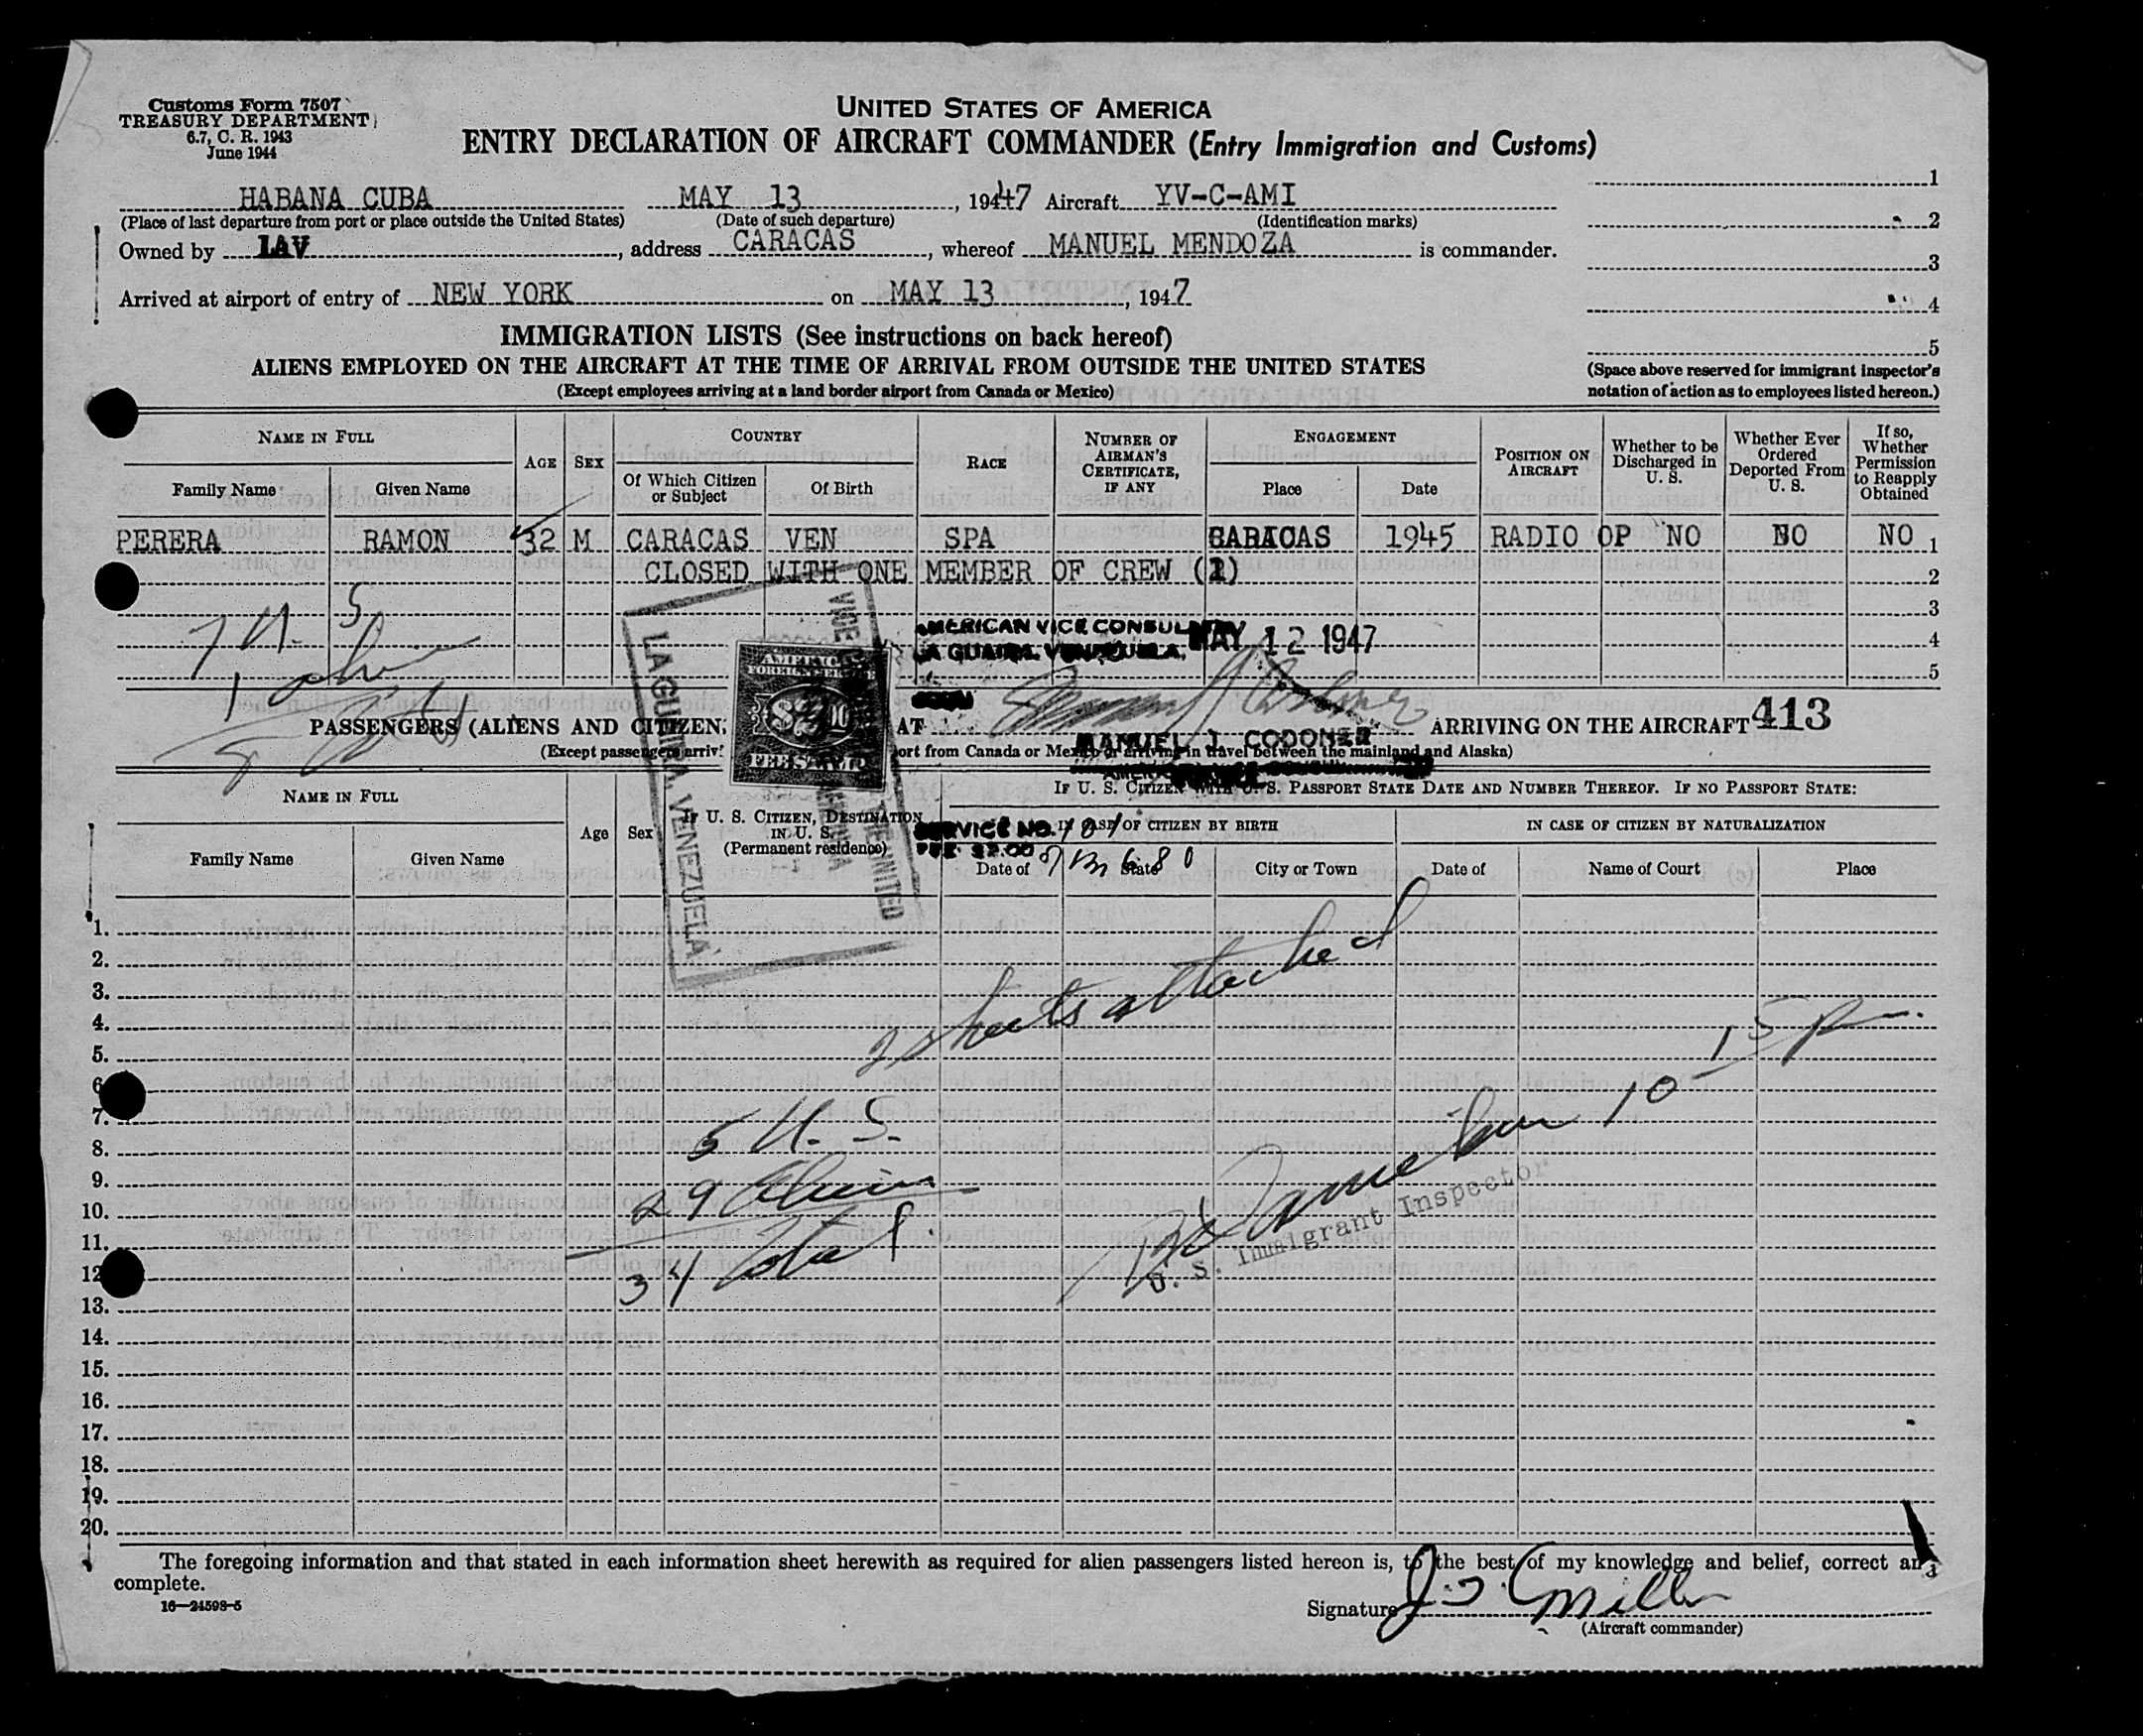 Customs Form 7507
TREASURY DEPARTMENT
6.7, C. R. 1943
June 1944
UNITED STATES OF AMERICA
ENTRY DECLARATION OF AIRCRAFT COMMANDER (Entry Immigration and Customs)
HABANA CUBA MAY 13, 1947 Aircraft YV-C-AMI
(Place of last departure from port or place outside the United States) (Date of such departure) (Identification marks)
Owned by LAV, address CARACAS, whereof MANUEL MENDOZA is commander.
Arrived at airport of entry of NEW YORK on MAY 13, 1947
1
2
3
4
5
(Space above reserved for immigrant inspector's
notation of action as to employees listed hereon.)
IMMIGRATION LISTS (See instructions on back hereof)
ALIENS EMPLOYED ON THE AIRCRAFT AT THE TIME OF ARRIVAL FROM OUTSIDE THE UNITED STATES
(Except employees arriving at a land border airport from Canada or Mexico)
NAME IN FULL
Family Name Given Name
AGE SEX
COUNTRY
Of Which Citizen or Subject Of Birth
RACE
NUMBER OF AIRMAN'S CERTIFICATE, IF ANY
ENGAGEMENT
Place Date
POSITION ON AIRCRAFT
Whether to be Discharged in U. S.
Whether Ever Ordered Deported From U. S.
If so, Whether Permission to Reapply Obtained
PERERA RAMON 32 M CARACAS VEN SPA CARACAS 1945 RADIO OP NO NO NO 1
CLOSED WITH ONE MEMBER OF CREW (1) 2
3
4
5
AMERICAN VICE CONSUL MAY 12 1947
LA GUAIRA, VENEZUELA
LA GUAIRA, VENEZUELA
VICE
AMERICAN
FOREIGN SERVICE
FEE STAMP
PASSENGERS (ALIENS AND CITIZEN AT ARRIVING ON THE AIRCRAFT 413
(Except passengers arriv ort from Canada or Mexico or arriving in travel between the mainland and Alaska)
MANUEL J. CODONER
NAME IN FULL
Family Name Given Name
Age Sex
IF U. S. CITIZEN, DESTINATION IN U. S.
(Permanent residence)
IF U. S. CITIZEN WITH U. S. PASSPORT STATE DATE AND NUMBER THEREOF. IF NO PASSPORT STATE:
SERVICE NO.
IN CASE OF CITIZEN BY BIRTH IN CASE OF CITIZEN BY NATURALIZATION
Date of State City or Town Date of Name of Court Place
1.
2.
3.
4.
5.
6.
7.
8.
9.
10.
11.
12.
13.
14.
15.
16.
17.
18.
19.
20.
2 sheets attached
5 U. S.
29 Aliens
34 Total
U. S. Immigrant Inspector
The foregoing information and that stated in each information sheet herewith as required for alien passengers listed hereon is, to the best of my knowledge and belief, correct and
complete.
16—24598-5
Signature
(Aircraft commander)